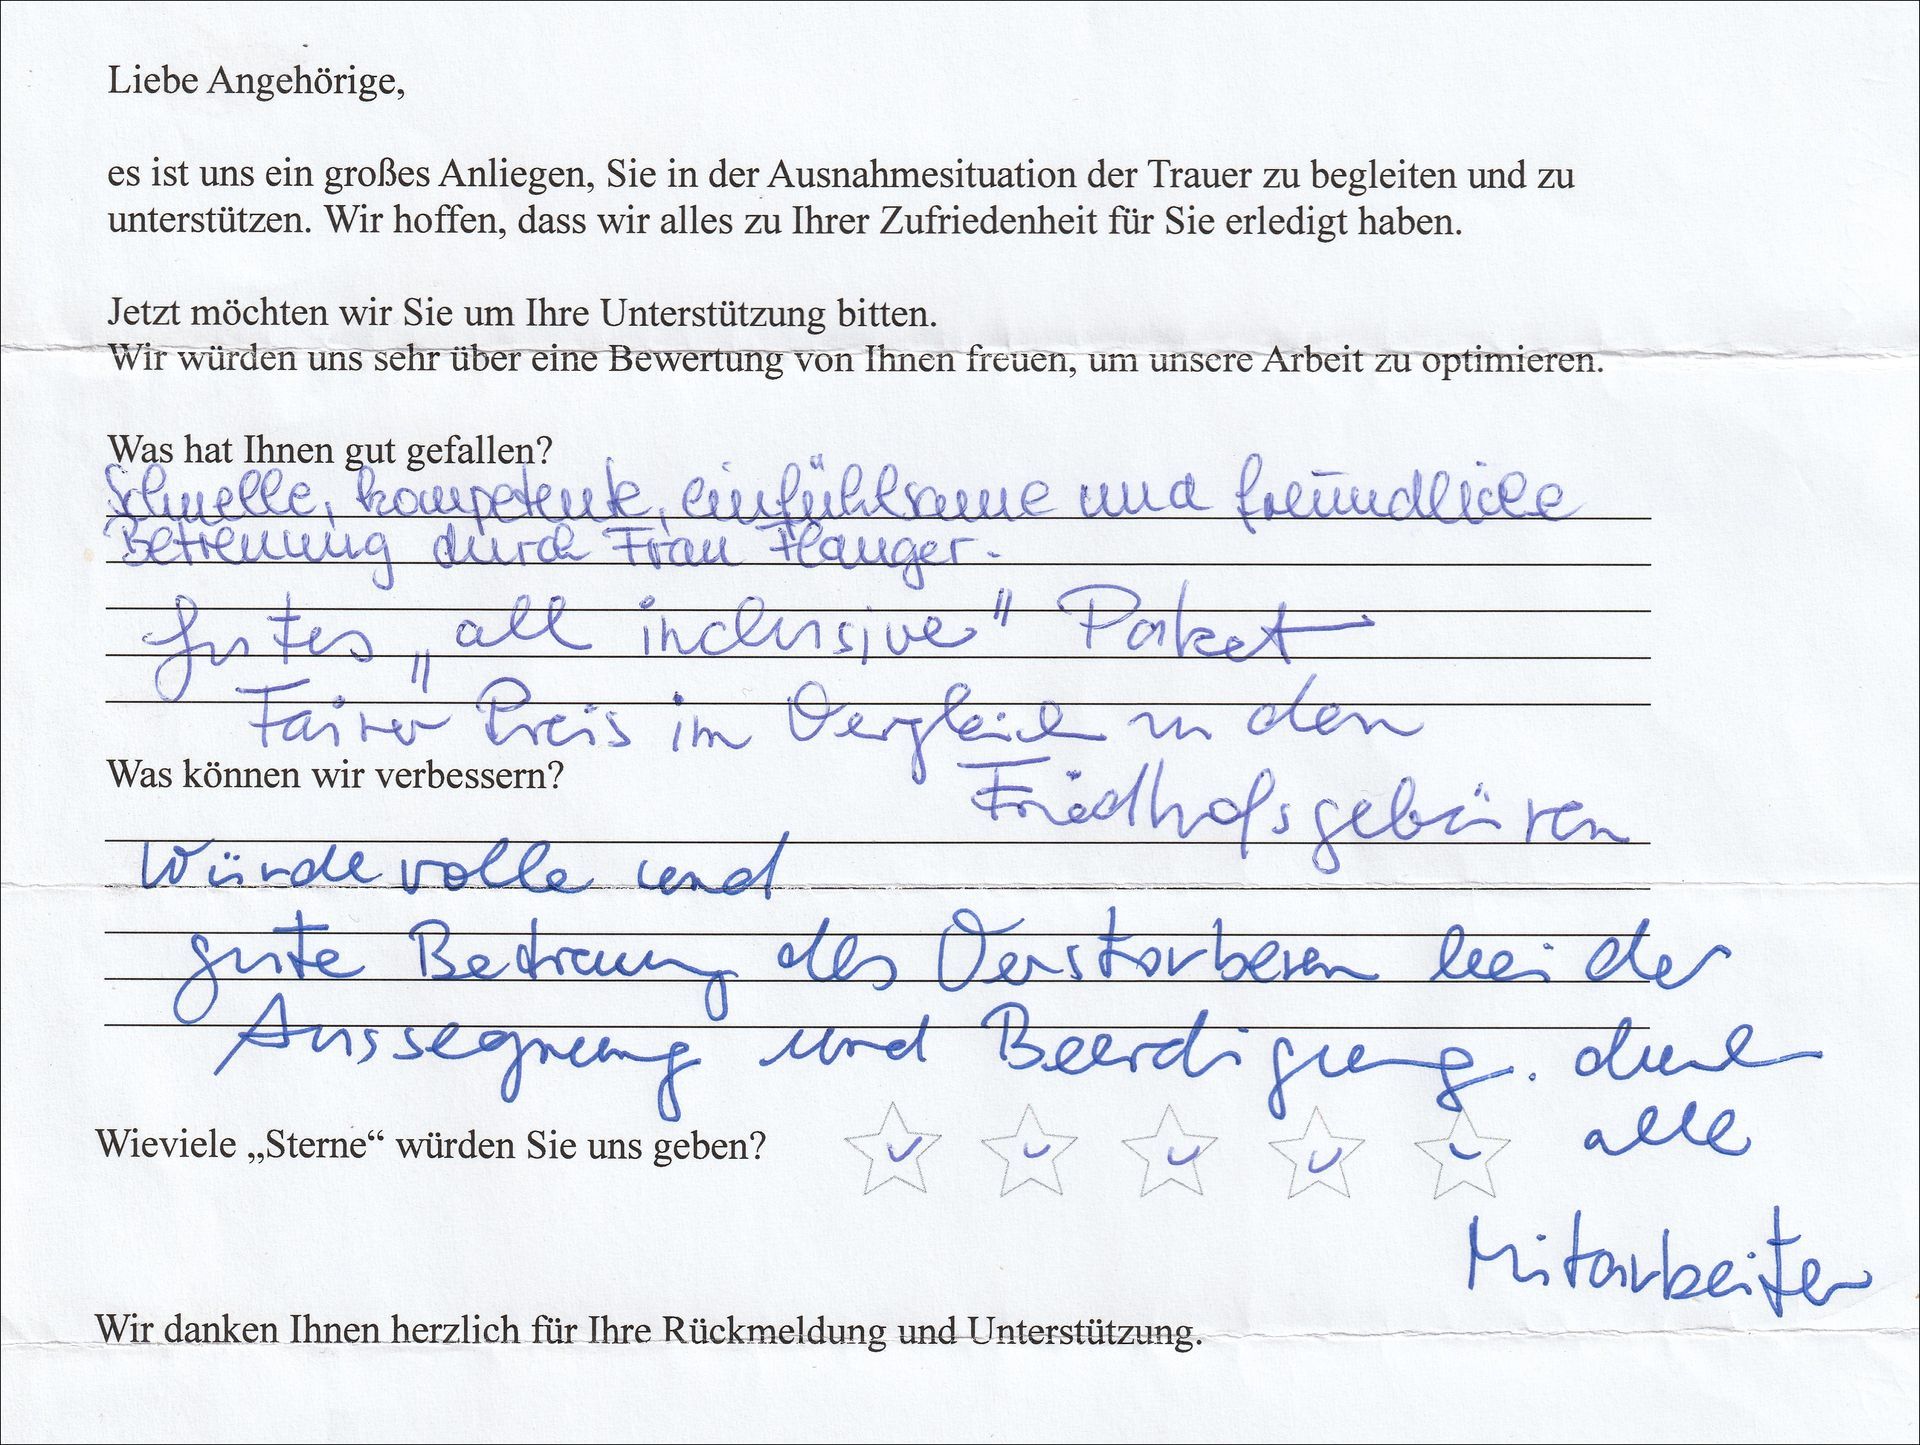 Liebe Angehörige,
es ist uns ein großes Anliegen, Sie in der Ausnahmesituation der Trauer zu begleiten und zu
unterstützen. Wir hoffen, dass wir alles zu Ihrer Zufriedenheit für Sie erledigt haben.
Jetzt möchten wir Sie um Ihre Unterstützung bitten.
Wir würden uns sehr über eine Bewertung von Ihnen freuen, um unsere Arbeit zu optimieren.
Was hat Ihnen gut gefallen?
Schnelle, kompetente, einfühlsame und freundliche
Betreuung durch Frau Flauger.
Gutes „all inclusive" Paket
Fairer Preis im Vergleich zu den
Friedhofsgebüren
Was können wir verbessern?
Würdevolle und
gute Betreuung des Verstorbenen bei der
Aussegnung und Beerdigung. durch
alle
Mitarbeiter
Wieviele „Sterne“ würden Sie uns geben?
Wir danken Ihnen herzlich für Ihre Rückmeldung und Unterstützung.